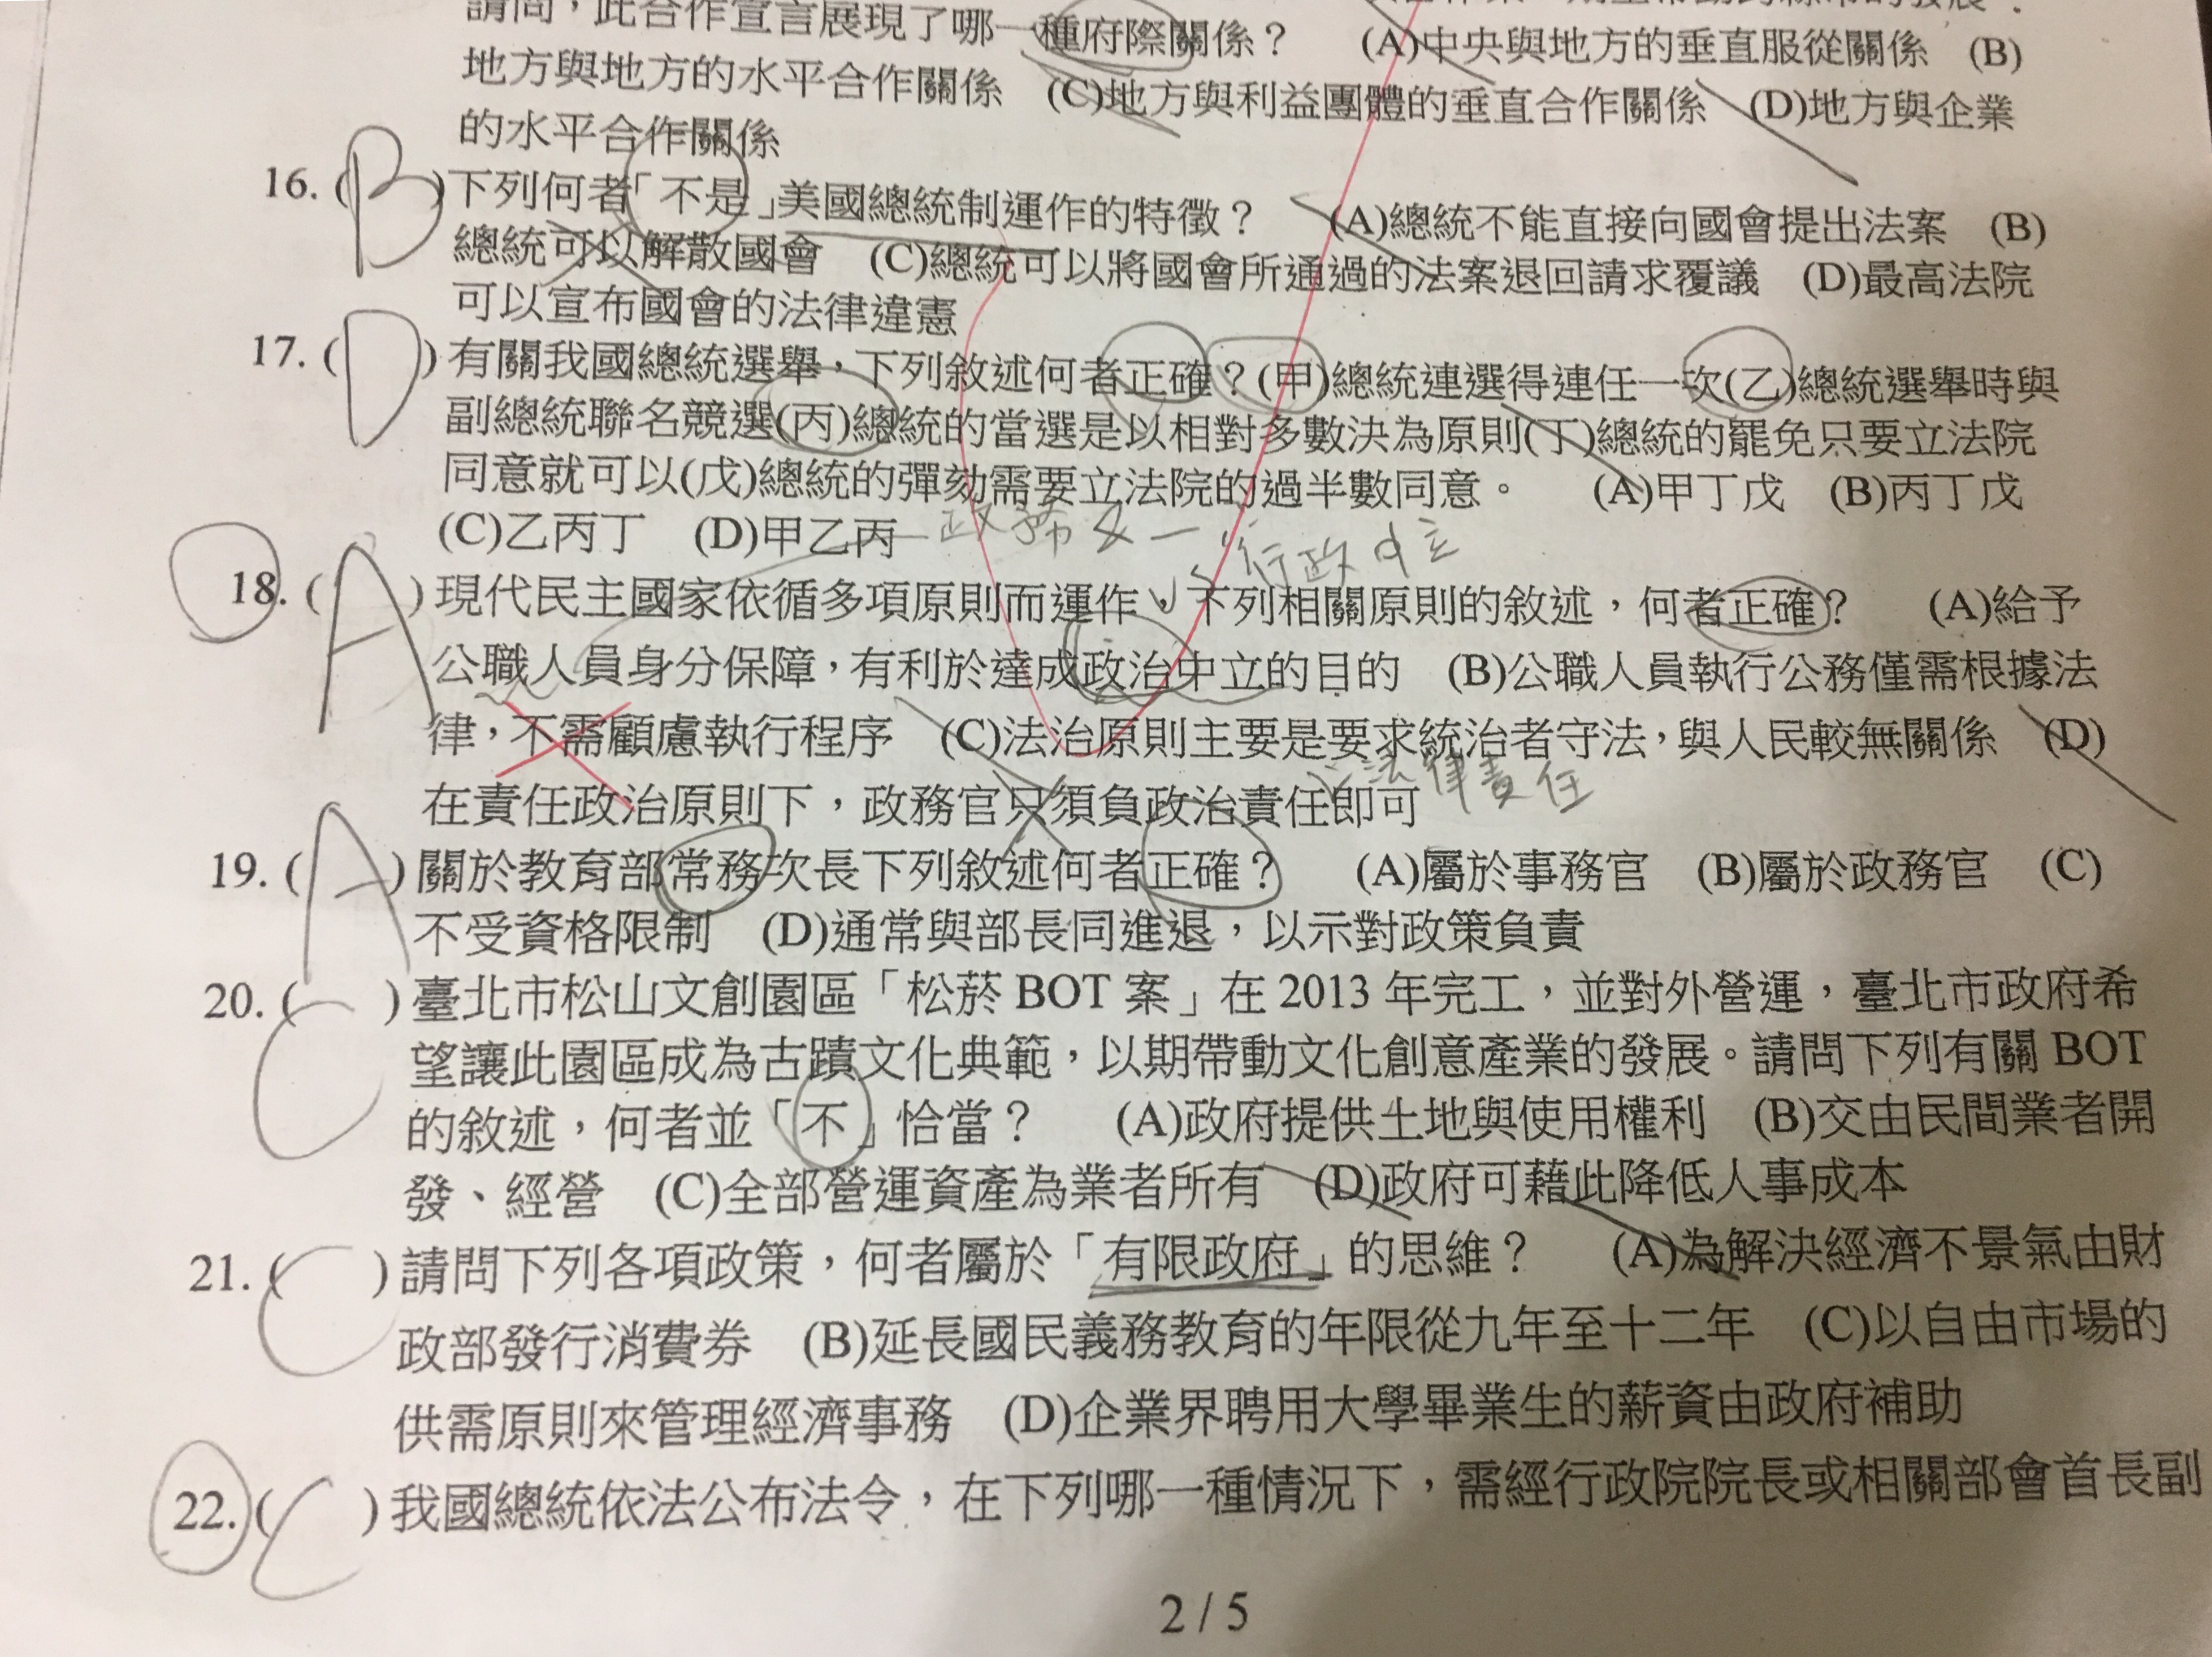 請問，此合作宣言展現了哪一種府際關係？　(A)中央與地方的垂直服從關係　(B)
地方與地方的水平合作關係　(C)地方與利益團體的垂直合作關係　(D)地方與企業
的水平合作關係
16. (B)下列何者「不是」美國總統制運作的特徵？　(A)總統不能直接向國會提出法案　(B)
總統可以解散國會　(C)總統可以將國會所通過的法案退回請求覆議　(D)最高法院
可以宣布國會的法律違憲
17. (D)有關我國總統選舉，下列敘述何者正確？(甲)總統連選得連任一次(乙)總統選舉時與
副總統聯名競選(丙)總統的當選是以相對多數決為原則(丁)總統的罷免只要立法院
同意就可以(戊)總統的彈劾需要立法院的過半數同意。　(A)甲丁戊　(B)丙丁戊
(C)乙丙丁　(D)甲乙丙
行政中立
18. (A)現代民主國家依循多項原則而運作，下列相關原則的敘述，何者正確？　(A)給予
公職人員身分保障，有利於達成政治中立的目的　(B)公職人員執行公務僅需根據法
律，不需顧慮執行程序　(C)法治原則主要是要求統治者守法，與人民較無關係　(D)
法律責任
在責任政治原則下，政務官只須負政治責任即可
19. (A)關於教育部常務次長下列敘述何者正確？　(A)屬於事務官　(B)屬於政務官　(C)
不受資格限制　(D)通常與部長同進退，以示對政策負責
20. (C)臺北市松山文創園區「松菸 BOT 案」在 2013 年完工，並對外營運，臺北市政府希
望讓此園區成為古蹟文化典範，以期帶動文化創意產業的發展。請問下列有關 BOT
的敘述，何者並「不」恰當？　(A)政府提供土地與使用權利　(B)交由民間業者開
發、經營　(C)全部營運資產為業者所有　(D)政府可藉此降低人事成本
21. (C)請問下列各項政策，何者屬於「有限政府」的思維？　(A)為解決經濟不景氣由財
政部發行消費券　(B)延長國民義務教育的年限從九年至十二年　(C)以自由市場的
供需原則來管理經濟事務　(D)企業界聘用大學畢業生的薪資由政府補助
22. (C)我國總統依法公布法令，在下列哪一種情況下，需經行政院院長或相關部會首長副
2 / 5